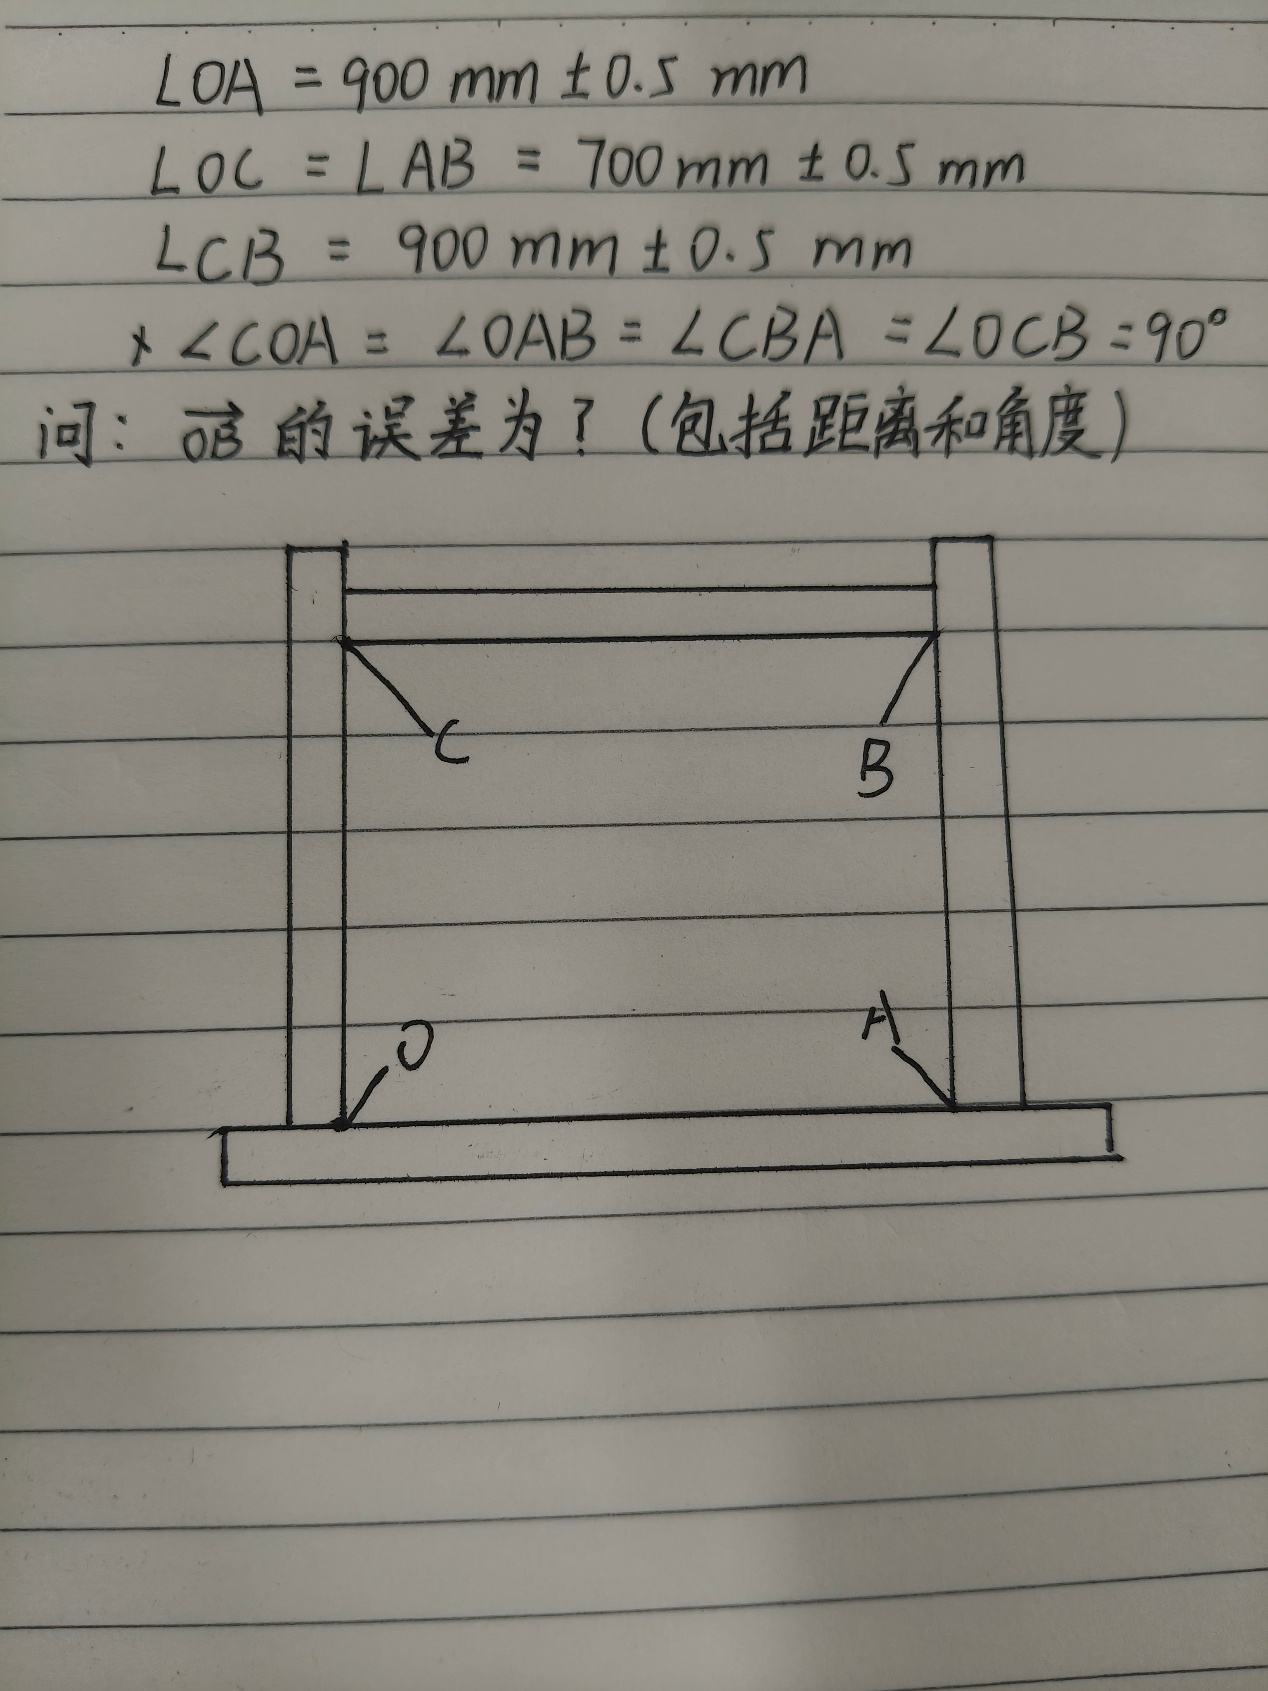 LOA = 900 mm ± 0.5 mm
LOC = LAB = 700 mm ± 0.5 mm
LCB = 900 mm ± 0.5 mm
× ∠COA = ∠OAB = ∠CBA = ∠OCB = 90°
问: \overrightarrow{OB} 的误差为? (包括距离和角度)
C
B
O
A